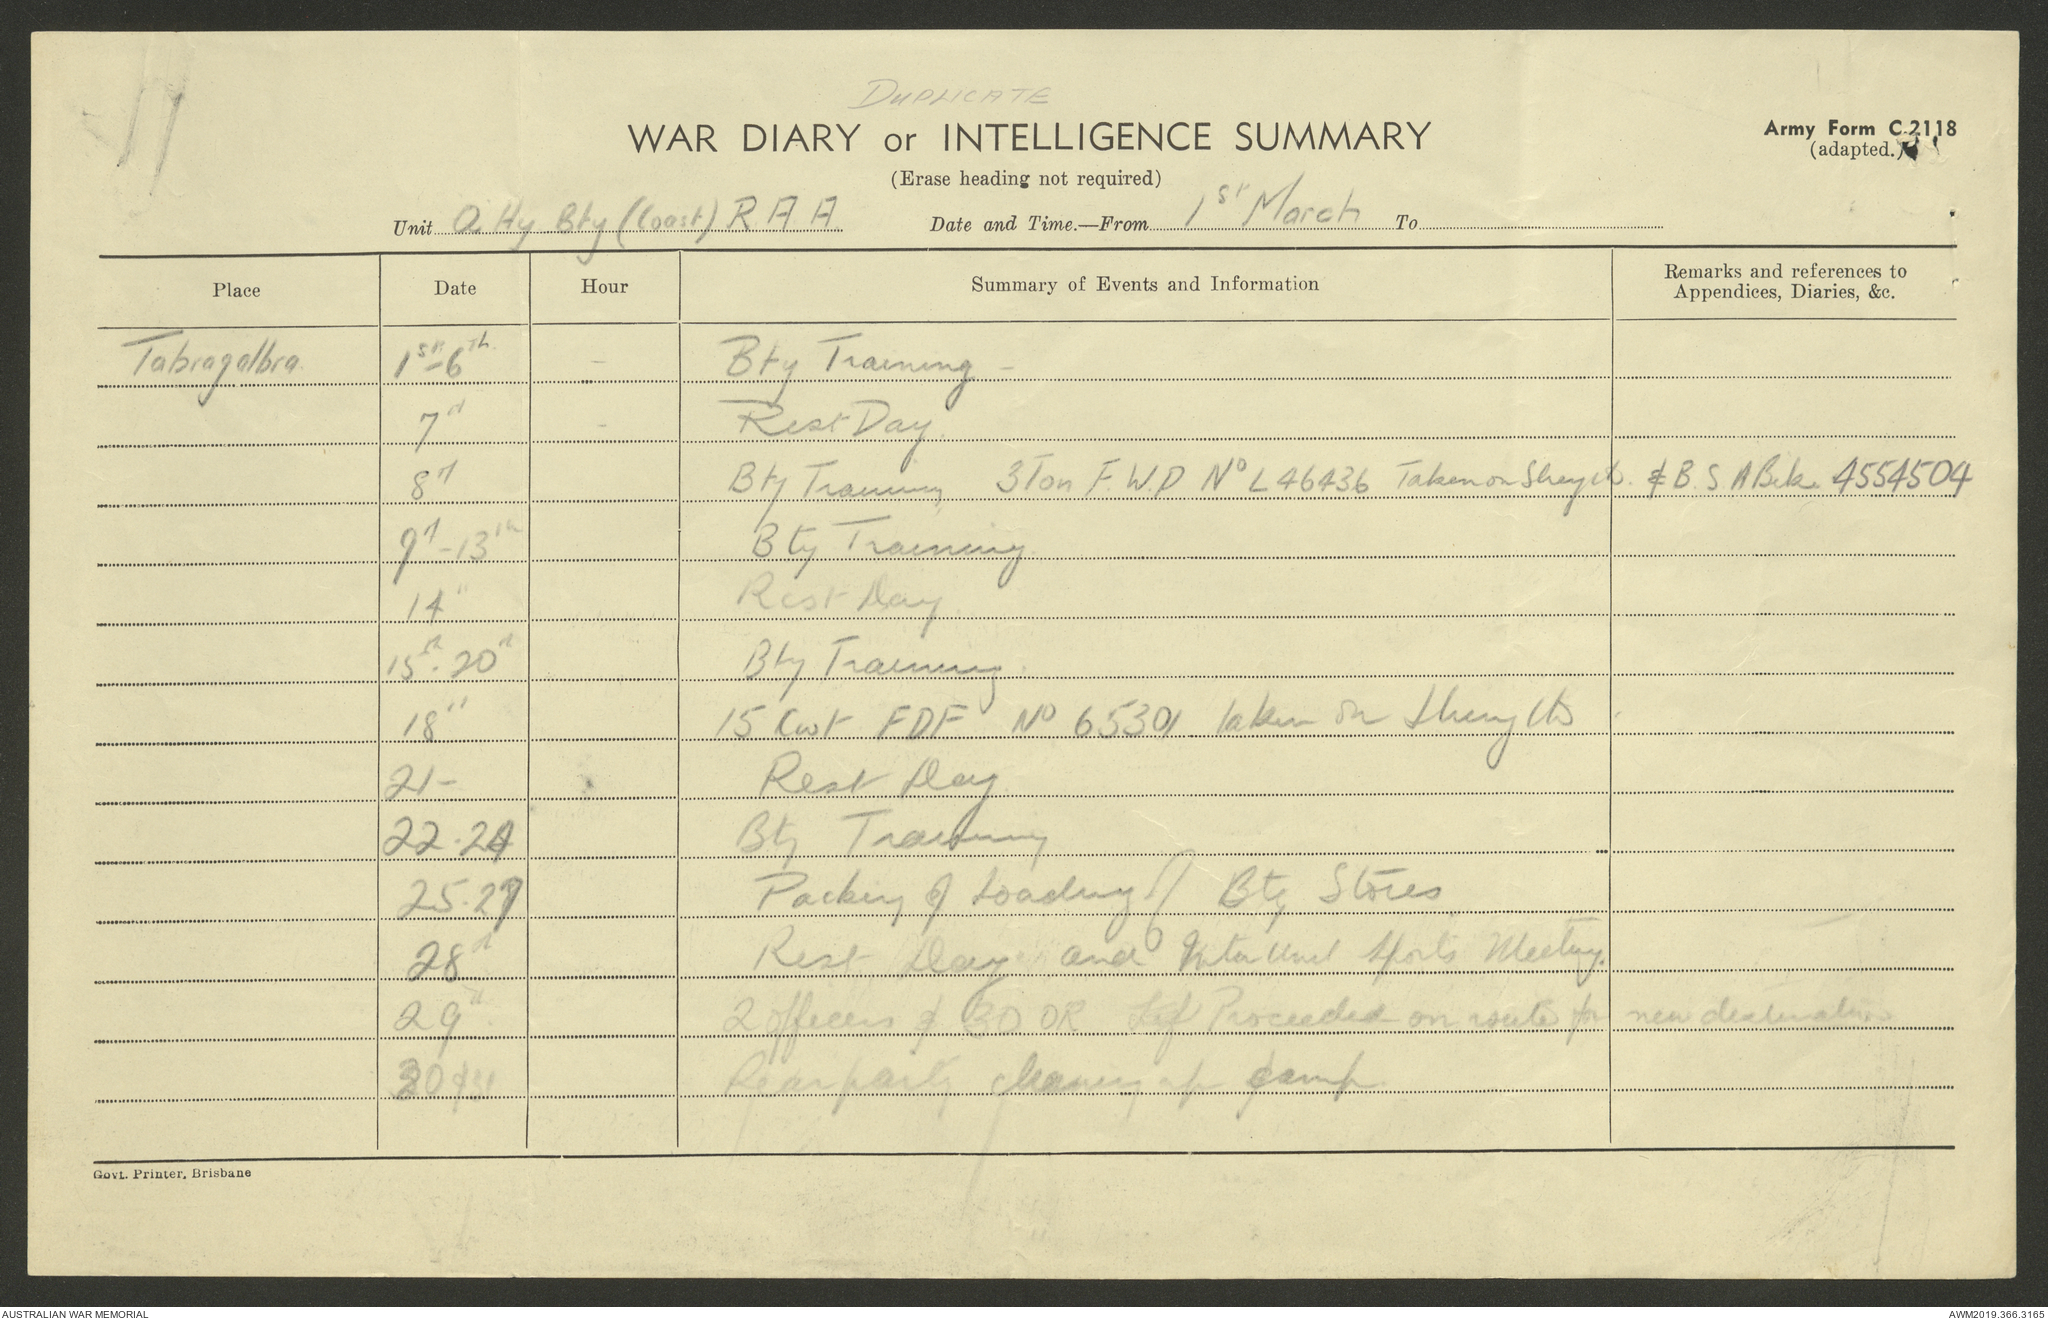 DUPLICATE
WAR DIARY or INTELLIGENCE SUMMARY
Army Form C.2118
(adapted.)
(Erase heading not required)
Unit Q Hy Bty (Coast) R A A Date and Time.—From 1st March To
Place Date Hour Summary of Events and Information Remarks and references to Appendices, Diaries, &c.
Tabragalbra 1st-6th - Bty Training -
7th - Rest Day.
8th Bty Training 3 Ton F.W.D No L46436 Taken on Strength. & B.S.A Bike 4554504
9th-13th Bty Training
14" Rest Day
15th-20th Bty Training.
18" 15 Cwt FDF No 65301 taken on Strength
21- Rest Day
22.24 Bty Training
25.27 Packing & Loading of Bty Stores
28th Rest Day and Inter Unit Sports Meeting.
29th 2 officers & 30 OR Proceeded on route for new destination
30 & 31 Rear party cleaning up camp.
Govt. Printer, Brisbane
AUSTRALIAN WAR MEMORIAL
AWM2019.366.3165